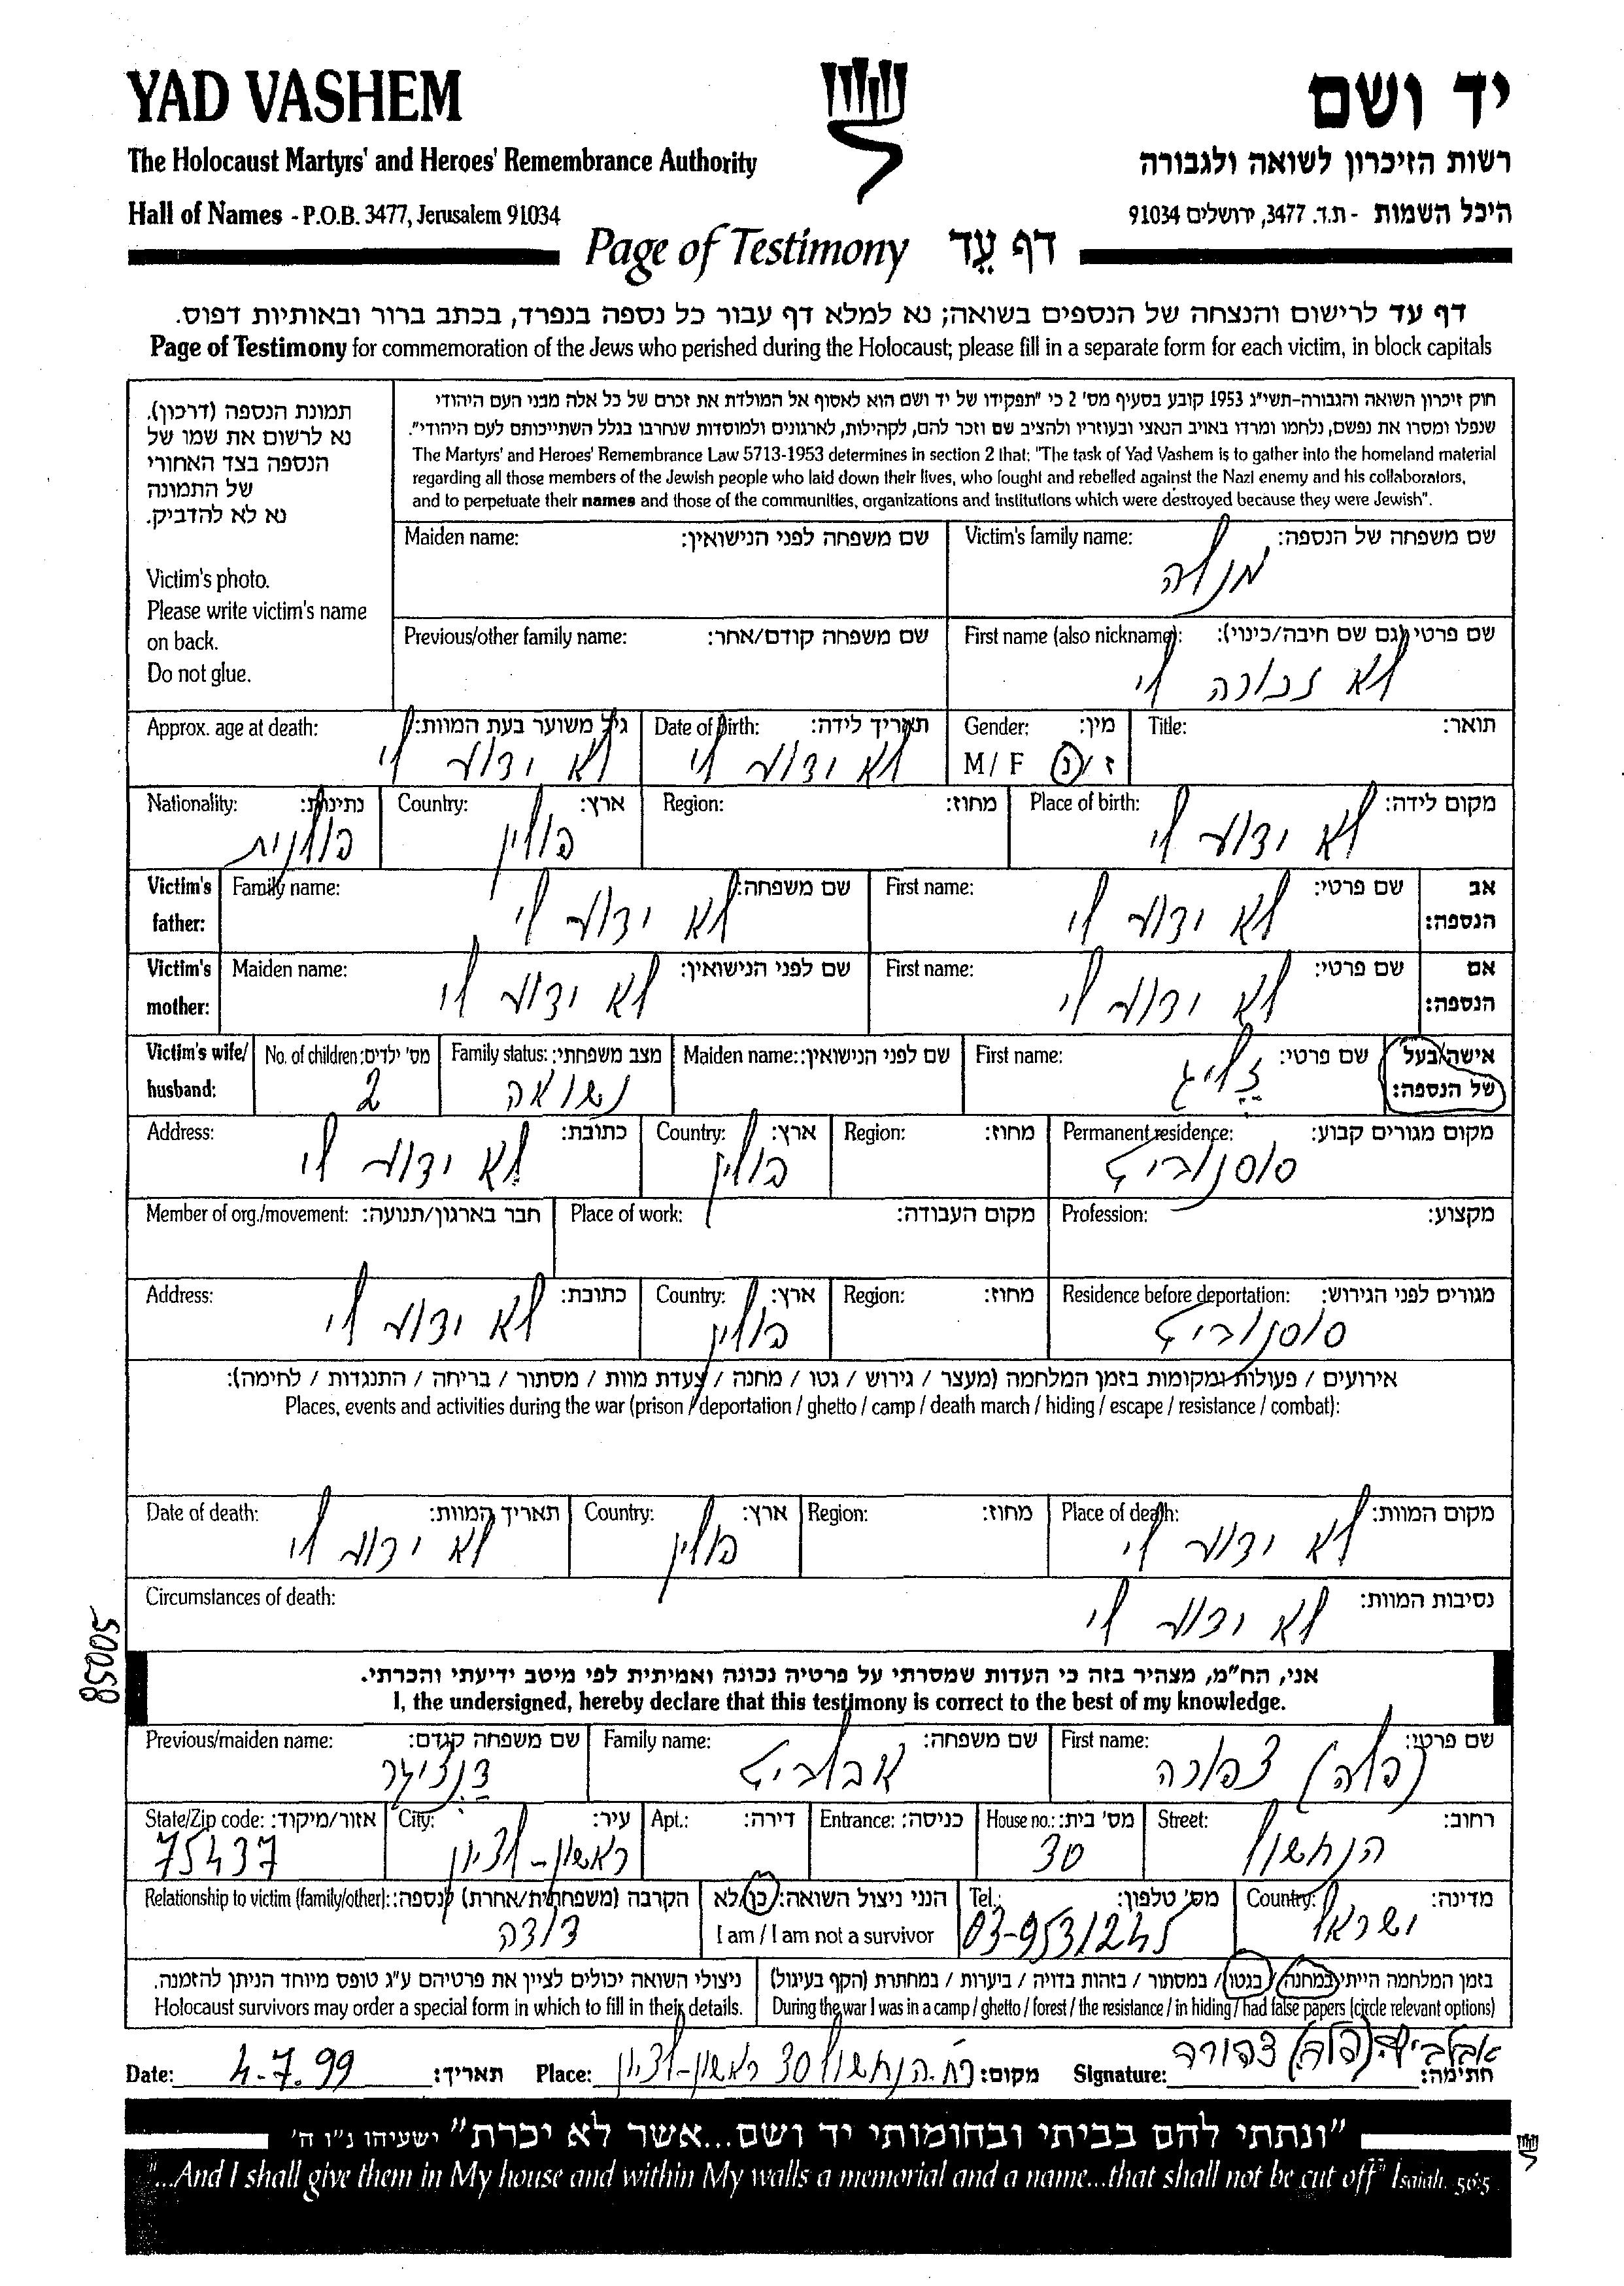 YAD VASHEM
יד ושם
The Holocaust Martyrs' and Heroes' Remembrance Authority
רשות הזיכרון לשואה ולגבורה
Hall of Names - P.O.B. 3477, Jerusalem 91034
היכל השמות - ת.ד. 3477, ירושלים 91034
Page of Testimony דף עֵד
דף עד לרישום והנצחה של הנספים בשואה; נא למלא דף עבור כל נספה בנפרד, בכתב ברור ובאותיות דפוס.
Page of Testimony for commemoration of the Jews who perished during the Holocaust; please fill in a separate form for each victim, in block capitals
תמונת הנספה (דרכון).
נא לרשום את שמו של
הנספה בצד האחורי
של התמונה
נא לא להדביק.
Victim's photo.
Please write victim's name
on back.
Do not glue.
חוק זיכרון השואה והגבורה-תשי"ג 1953 קובע בסעיף מס' 2 כי "תפקידו של יד ושם הוא לאסוף אל המולדת את זכרם של כל אלה מבני העם היהודי
שנפלו ומסרו את נפשם, נלחמו ומרדו באויב הנאצי ובעוזריו ולהציב שם וזכר להם, לקהילות, לארגונים ולמוסדות שנחרבו בגלל השתייכותם לעם היהודי".
The Martyrs' and Heroes' Remembrance Law 5713-1953 determines in section 2 that: "The task of Yad Vashem is to gather into the homeland material
regarding all those members of the Jewish people who laid down their lives, who fought and rebelled against the Nazi enemy and his collaborators,
and to perpetuate their names and those of the communities, organizations and institutions which were destroyed because they were Jewish".
שם משפחה של הנספה: Victim's family name: שם משפחה לפני הנישואין: Maiden name:
מנלה
שם פרטי (גם שם חיבה/כינוי): First name (also nickname): שם משפחה קודם/אחר: Previous/other family name:
לא זכורה לי
תואר: Title: מין: Gender: תאריך לידה: Date of birth: גיל משוער בעת המוות: Approx. age at death:
ז/נ M/F לא ידוע לי לא ידוע לי
מקום לידה: Place of birth: מחוז: Region: ארץ: Country: נתינות: Nationality:
לא ידוע לי פולין פולנית
אב הנספה: שם פרטי: First name: שם משפחה: Family name: Victim's father:
לא ידוע לי לא ידוע לי
אם הנספה: שם פרטי: First name: שם לפני הנישואין: Maiden name: Victim's mother:
לא ידוע לי לא ידוע לי
אישה/בעל של הנספה: שם פרטי: First name: שם לפני הנישואין: Maiden name: מצב משפחתי: Family status: מס' ילדים: No. of children: Victim's wife/ husband:
זליג נשואה 2
מקום מגורים קבוע: Permanent residence: מחוז: Region: ארץ: Country: כתובת: Address:
סוסנוביץ פולין לא ידוע לי
מקצוע: Profession: מקום העבודה: Place of work: חבר בארגון/תנועה: Member of org./movement:
מגורים לפני הגירוש: Residence before deportation: מחוז: Region: ארץ: Country: כתובת: Address:
סוסנוביץ פולין לא ידוע לי
אירועים / פעולות ומקומות בזמן המלחמה (מעצר / גירוש / גטו / מחנה / צעדת מוות / מסתור / בריחה / התנגדות / לחימה):
Places, events and activities during the war (prison / deportation / ghetto / camp / death march / hiding / escape / resistance / combat):
מקום המוות: Place of death: מחוז: Region: ארץ: Country: תאריך המוות: Date of death:
לא ידוע לי פולין לא ידוע לי
נסיבות המוות: Circumstances of death:
לא ידוע לי
85005
אני, הח"מ, מצהיר בזה כי העדות שמסרתי על פרטיה נכונה ואמיתית לפי מיטב ידיעתי והכרתי.
I, the undersigned, hereby declare that this testimony is correct to the best of my knowledge.
שם פרטי: First name: שם משפחה: Family name: שם משפחה קודם: Previous/maiden name:
(פולה) צפורה אבלביץ דנציגר
רחוב: Street: מס' בית: House no.: כניסה: Entrance: דירה: Apt.: עיר: City: אזור/מיקוד: State/Zip code:
הנחשול 30 ראשון-לציון 75437
מדינה: Country: מס' טלפון: Tel.: הנני ניצול השואה: כן/לא הקרבה (משפחתית/אחרת) לנספה: Relationship to victim (family/other):
ישראל 03-9531245 I am / I am not a survivor דודה
בזמן המלחמה הייתי במחנה / בגטו / במסתור / בזהות בדויה / ביערות / במחתרת (הקף בעיגול)
During the war I was in a camp / ghetto / forest / the resistance / in hiding / had false papers (circle relevant options)
ניצולי השואה יכולים לציין את פרטיהם ע"ג טופס מיוחד הניתן להזמנה.
Holocaust survivors may order a special form in which to fill in their details.
חתימה: אבלביץ (פולה) צפורה Signature: מקום: רח. הנחשול 30 ראשון-לציון Place: תאריך: 4.7.99 Date:
"ונתתי להם בביתי ובחומותי יד ושם...אשר לא יכרת" ישעיהו נ"ו ה'
"...And I shall give them in My house and within My walls a memorial and a name...that shall not be cut off" Isaiah. 56:5